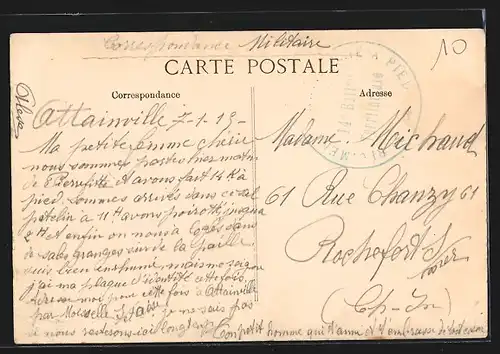 Correspondance Militaire
10
CARTE POSTALE
Correspondance
Adresse
Attainville 7-1-15-
Ma petite femme chérie
nous sommes partis hier matin
de Pierrefitte et avons fait 14 K à
pied. sommes arrivés dans ce
patelin à 11 H avons poiroté jusqu'à
H et enfin on nous a logés dans
de sales granges sur de la paille
suis bien enrhumé mais
j'ai ma plaque d'identité cette fois
moi pour cette fois à Attainville
par je ne sais pas
si nous resterons ici longtemps
Ton petit homme qui t'aime et t'embrasse
Madame Michaud
61 Rue Chanzy 61
Rochefort s/
mer
(Ch-Inf)